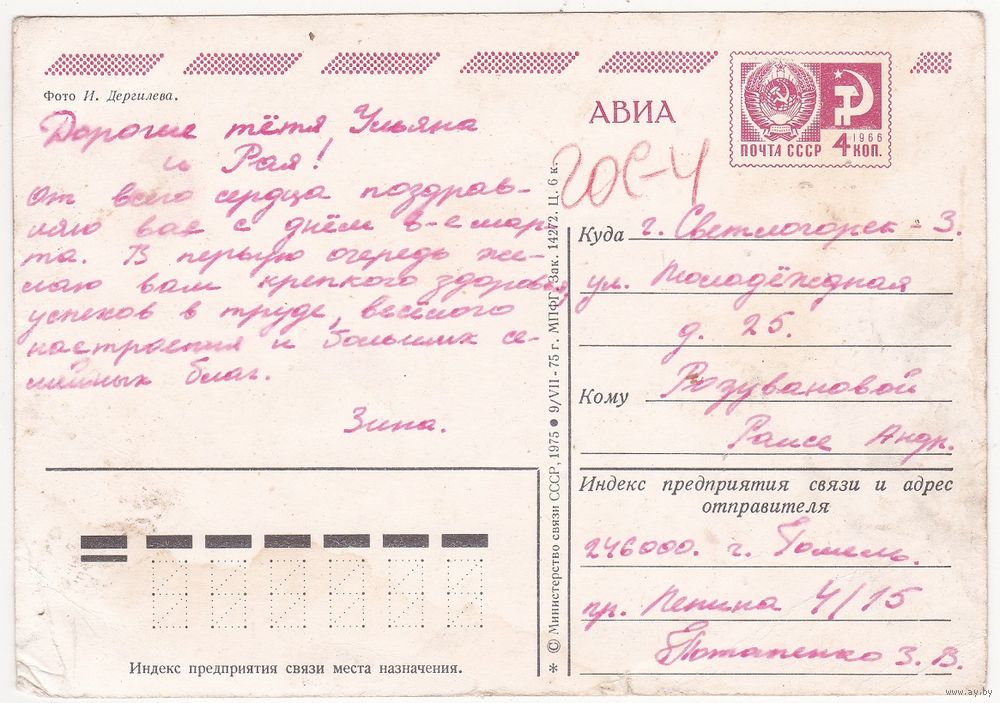 Фото И. Дергилева.
Дорогие тётя Ульяна
и Рая!
От всего сердца поздрав-
ляю вас с днём 8-е мар-
та. В перьую очередь же-
лаю вам крепкого здоровья,
успехов в труде, весёлого
настроения и больших се-
мейных благ.
Зина.
Индекс предприятия связи места назначения.
* © Министерство связи СССР, 1975 ● 9/VII - 75 г. МПФГ. Зак. 14272. Ц. 6 к.
АВИА
ПОЧТА СССР 4 КОП.
1966
Куда г. Светлогорск - 3.
ул. Молодёжная
д. 25.
Кому Розувановой
Раисе Андр.
Индекс предприятия связи и адрес
отправителя
246000. г. Гомель.
пр. Ленина 4/15
Потапенко З. В.
www.ay.by